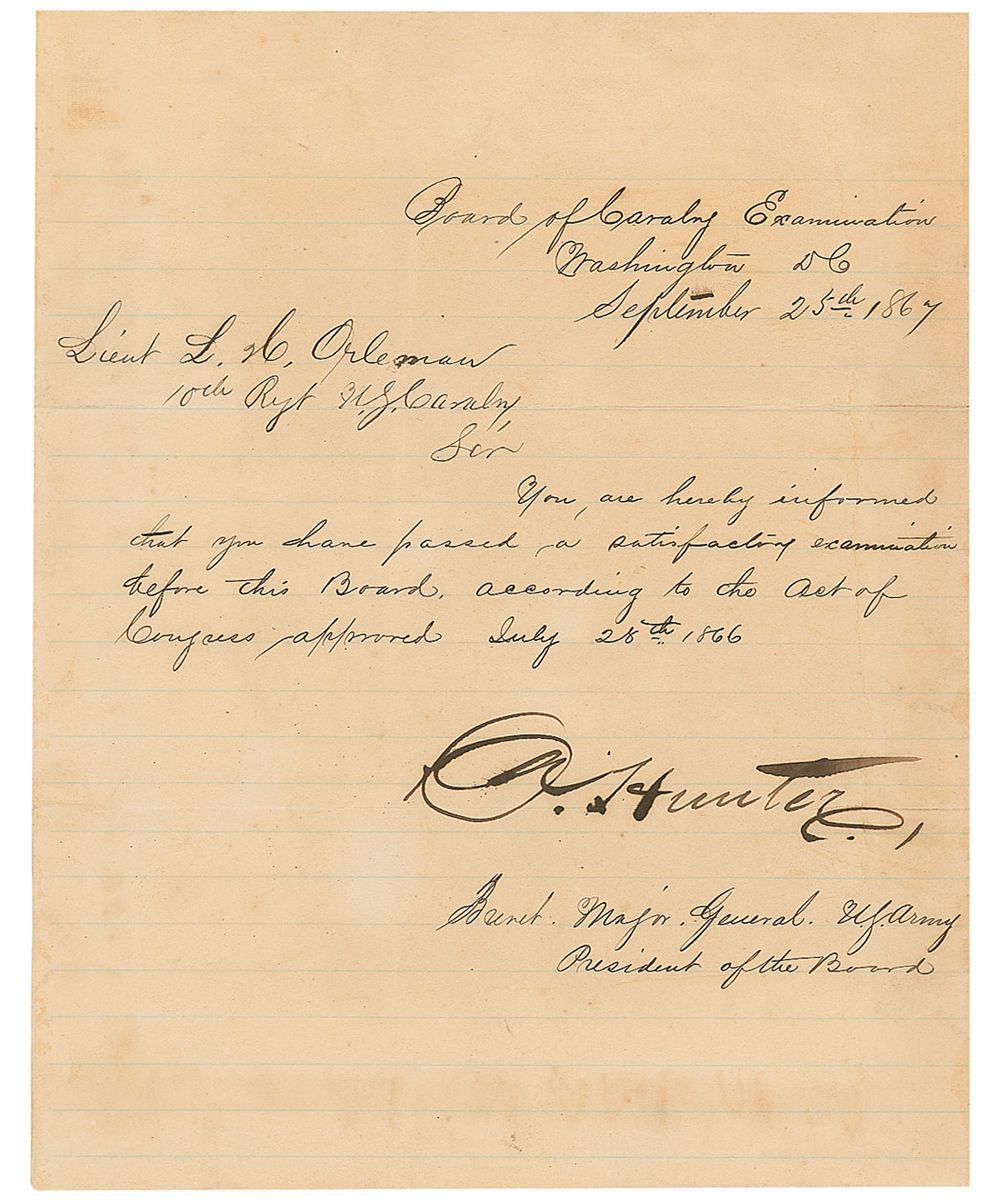 Board of Cavalry Examination
Washington DC
September 25th 1867
Lieut L. H. Orleman
10th Regt U.S. Cavalry,
Sir
You, are hereby informed
that you have passed a satisfactory examination
before this Board, according to the Act of
Congress approved July 28th 1866
D. Hunter,
Brevet. Major. General. U.S. Army
President of the Board